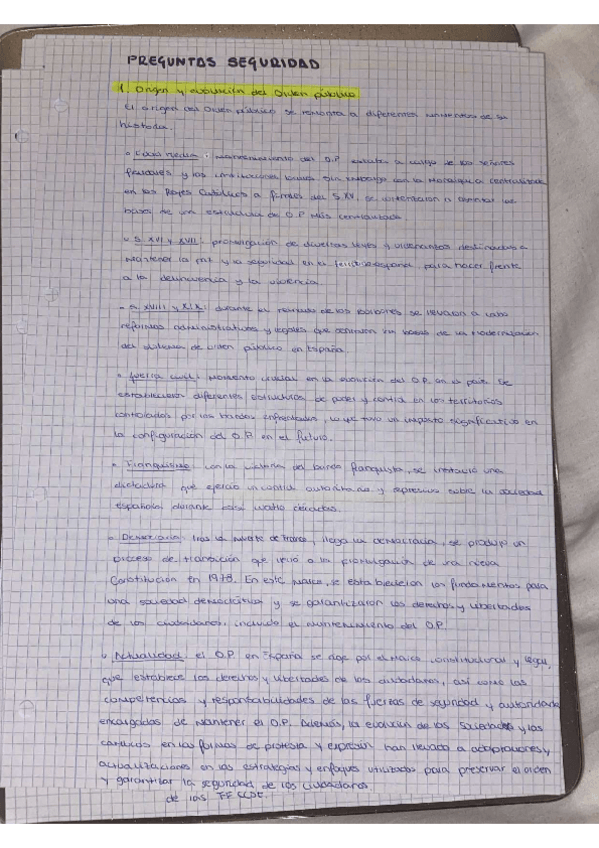 PREGUNTAS SEGURIDAD
1. Origen y evolución del Orden público
El origen del Orden público se remonta a diferentes momentos de su
historia.
• Edad Media: mantenimiento del O.P estaba a cargo de los señores
feudales y las instituciones locales. Sin embargo con la Monarquía centralizada
en los Reyes Católicos a finales del S.XV, se sentaron las
bases de una estructura de O.P más centralizada
• S. XVI y XVII: promulgación de diversas leyes y ordenanzas destinadas a
mantener la paz y la seguridad en el español, para hacer frente
a la delincuencia y la violencia.
• S. XVIII y XIX: durante el reinado de los borbones se llevaron a cabo
reformas administrativas y legales que las bases de la modernización
del sistema de orden público en España.
• Guerra civil: momento crucial en la evolución del O.P. en el país. Se
establecieron diferentes estructuras de poder y control en los territorios
controlados por los bandos enfrentados, lo que tuvo un impacto significativo en
la configuración del O.P. en el futuro.
• Franquismo: con la victoria del bando franquista, se instauró una
dictadura que ejerció un control autoritario y represivo sobre la sociedad
española durante casi cuatro décadas.
• Democracia: tras la muerte de Franco, llega la democracia, se produjo un
proceso de transición que llevó a la promulgación de una nueva
Constitución en 1978. En este marco, se establecieron los fundamentos para
una sociedad democrática y se garantizaron los derechos y libertades
de los ciudadanos, incluido el mantenimiento del O.P.
• Actualidad: el O.P. en España se rige por el marco constitucional y legal,
que establece los derechos y libertades de los ciudadanos, así como las
competencias y responsabilidades de las fuerzas de seguridad y autoridades
encargadas de mantener el O.P. Además, la evolución de la sociedad y los
cambios en las formas de protesta y expresión han llevado a adaptaciones y
actualizaciones en las estrategias y enfoques utilizados para preservar el orden
y garantizar la seguridad de los ciudadanos.
de las FFCCSE.